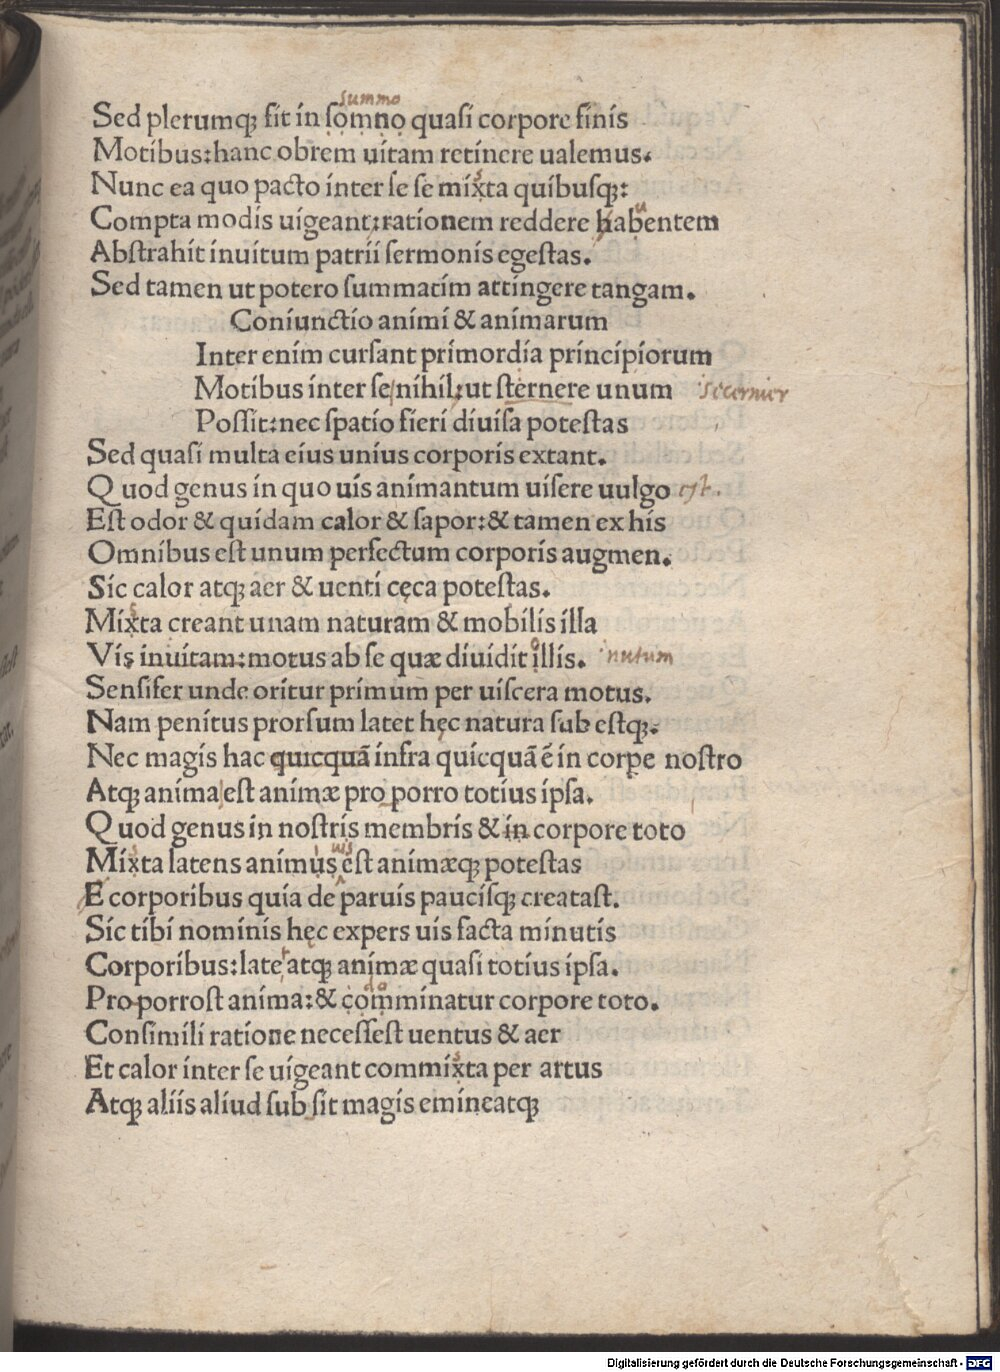 summo
Sed plerumqꝫ fit in somno quasi corpore finis
Motibus:hanc obrem uitam retinere ualemus.
Nunc ea quo pacto inter se se mixta quibusqꝫ:
Compta modis uigeant:rationem reddere habentem
Abstrahit inuitum patrii sermonis egestas.
Sed tamen ut potero summatim attingere tangam.
Coniunctio animi & animarum
Inter enim cursant primordia principiorum
Motibus inter se nihil:ut sternere unum secernier
Possit:nec spatio fieri diuisa potestas
Sed quasi multa eius unius corporis extant.
Q uod genus in quo uis animantum uisere uulgo
Est odor & quidam calor & sapor:& tamen ex his
Omnibus est unum perfectum corporis augmen.
Sic calor atqꝫ aer & uenti cęca potestas.
Mixta creant unam naturam & mobilis illa
Vis inuitam:motus ab se quæ diuidit illis. inutum
Sensifer unde oritur primum per uiscera motus.
Nam penitus prorsum latet hęc natura sub estqꝫ.
Nec magis hac quicquā infra quicquā ē in corpe nostro
Atqꝫ anima est animæ pro porro totius ipsa.
Q uod genus in nostris membris & in corpore toto
uis
Mixta latens animus est animæqꝫ potestas
E corporibus quia de paruis paucisqꝫ creatast.
Sic tibi nominis hęc expers uis facta minutis
Corporibus:late atqꝫ animæ quasi totius ipsa.
Pro porrost anima:& comminatur corpore toto.
Consimili ratione necessest uentus & aer
Et calor inter se uigeant commixta per artus
Atqꝫ aliis aliud sub sit magis emineatqꝫ
Digitalisierung gefördert durch die Deutsche Forschungsgemeinschaft - DFG